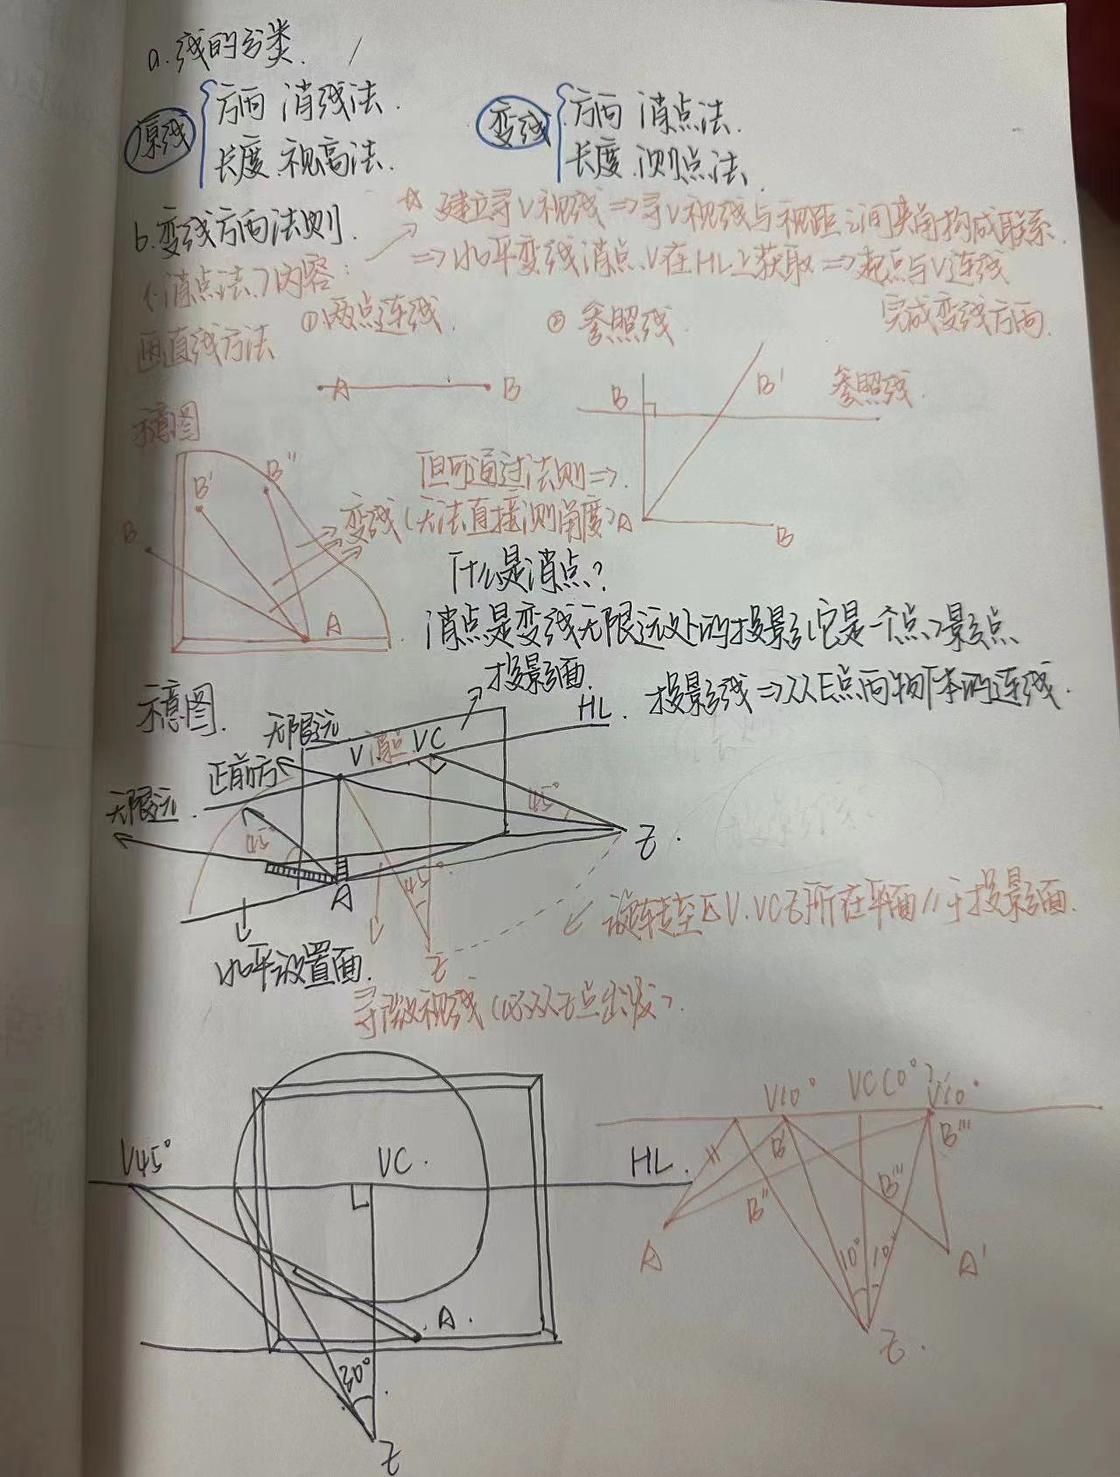 a.线的分类.
原线
方向 消线法.
长度.视高法.
变线
方向 消点法.
长度.测点法.
b.变线方向法则.
☆ 建立寻V视线⇒寻V视线与视距之间夹角构成联系.
⇒水平变线消点.V在HL上获取⇒起点与V连线
完成变线方向.
(消点法)内容:
画直线方法
①两点连线.
② 参照线.
A
B
B
B'
参照线.
A
B
示意图
B
B'
B"
A
但可通过法则⇒.
变线(无法直接测角度)
什么是消点?
消点是变线无限远处的投影(它是一个点)影点
投影线⇒从E点向物体的连线.
示意图.
投影面.
HL.
无限远
V消点
VC
正前方
无限远.
45°
45°
45°
E.
A
E
水平放置面.
旋转至△V.VCE所在平面//于投影面.
寻微视线(必从E点出发).
V45°
VC.
HL.
A.
30°
E
V10°
VC(0°)
V10°
B'
B"
B'''
B'''
A
A'
10°
10°
E.